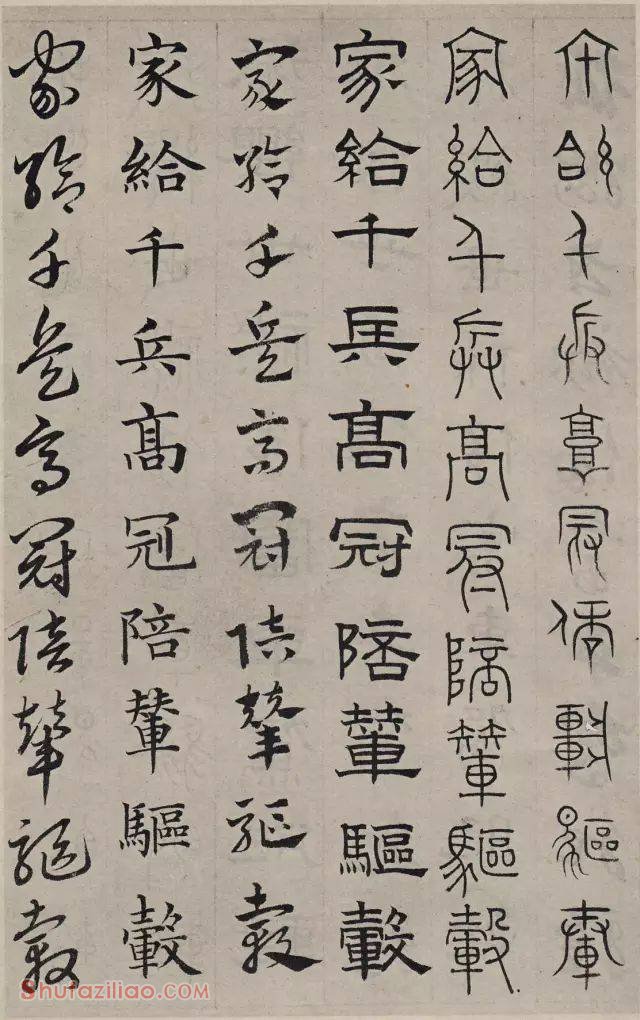 家給千兵高冠陪輦驅轂
家給千兵高冠陪輦驅轂
家給千兵高冠陪輦驅轂
家給千兵高冠陪輦驅轂
家給千兵高冠陪輦驅轂
家給千兵高冠陪輦驅轂
Shufaziliao.com